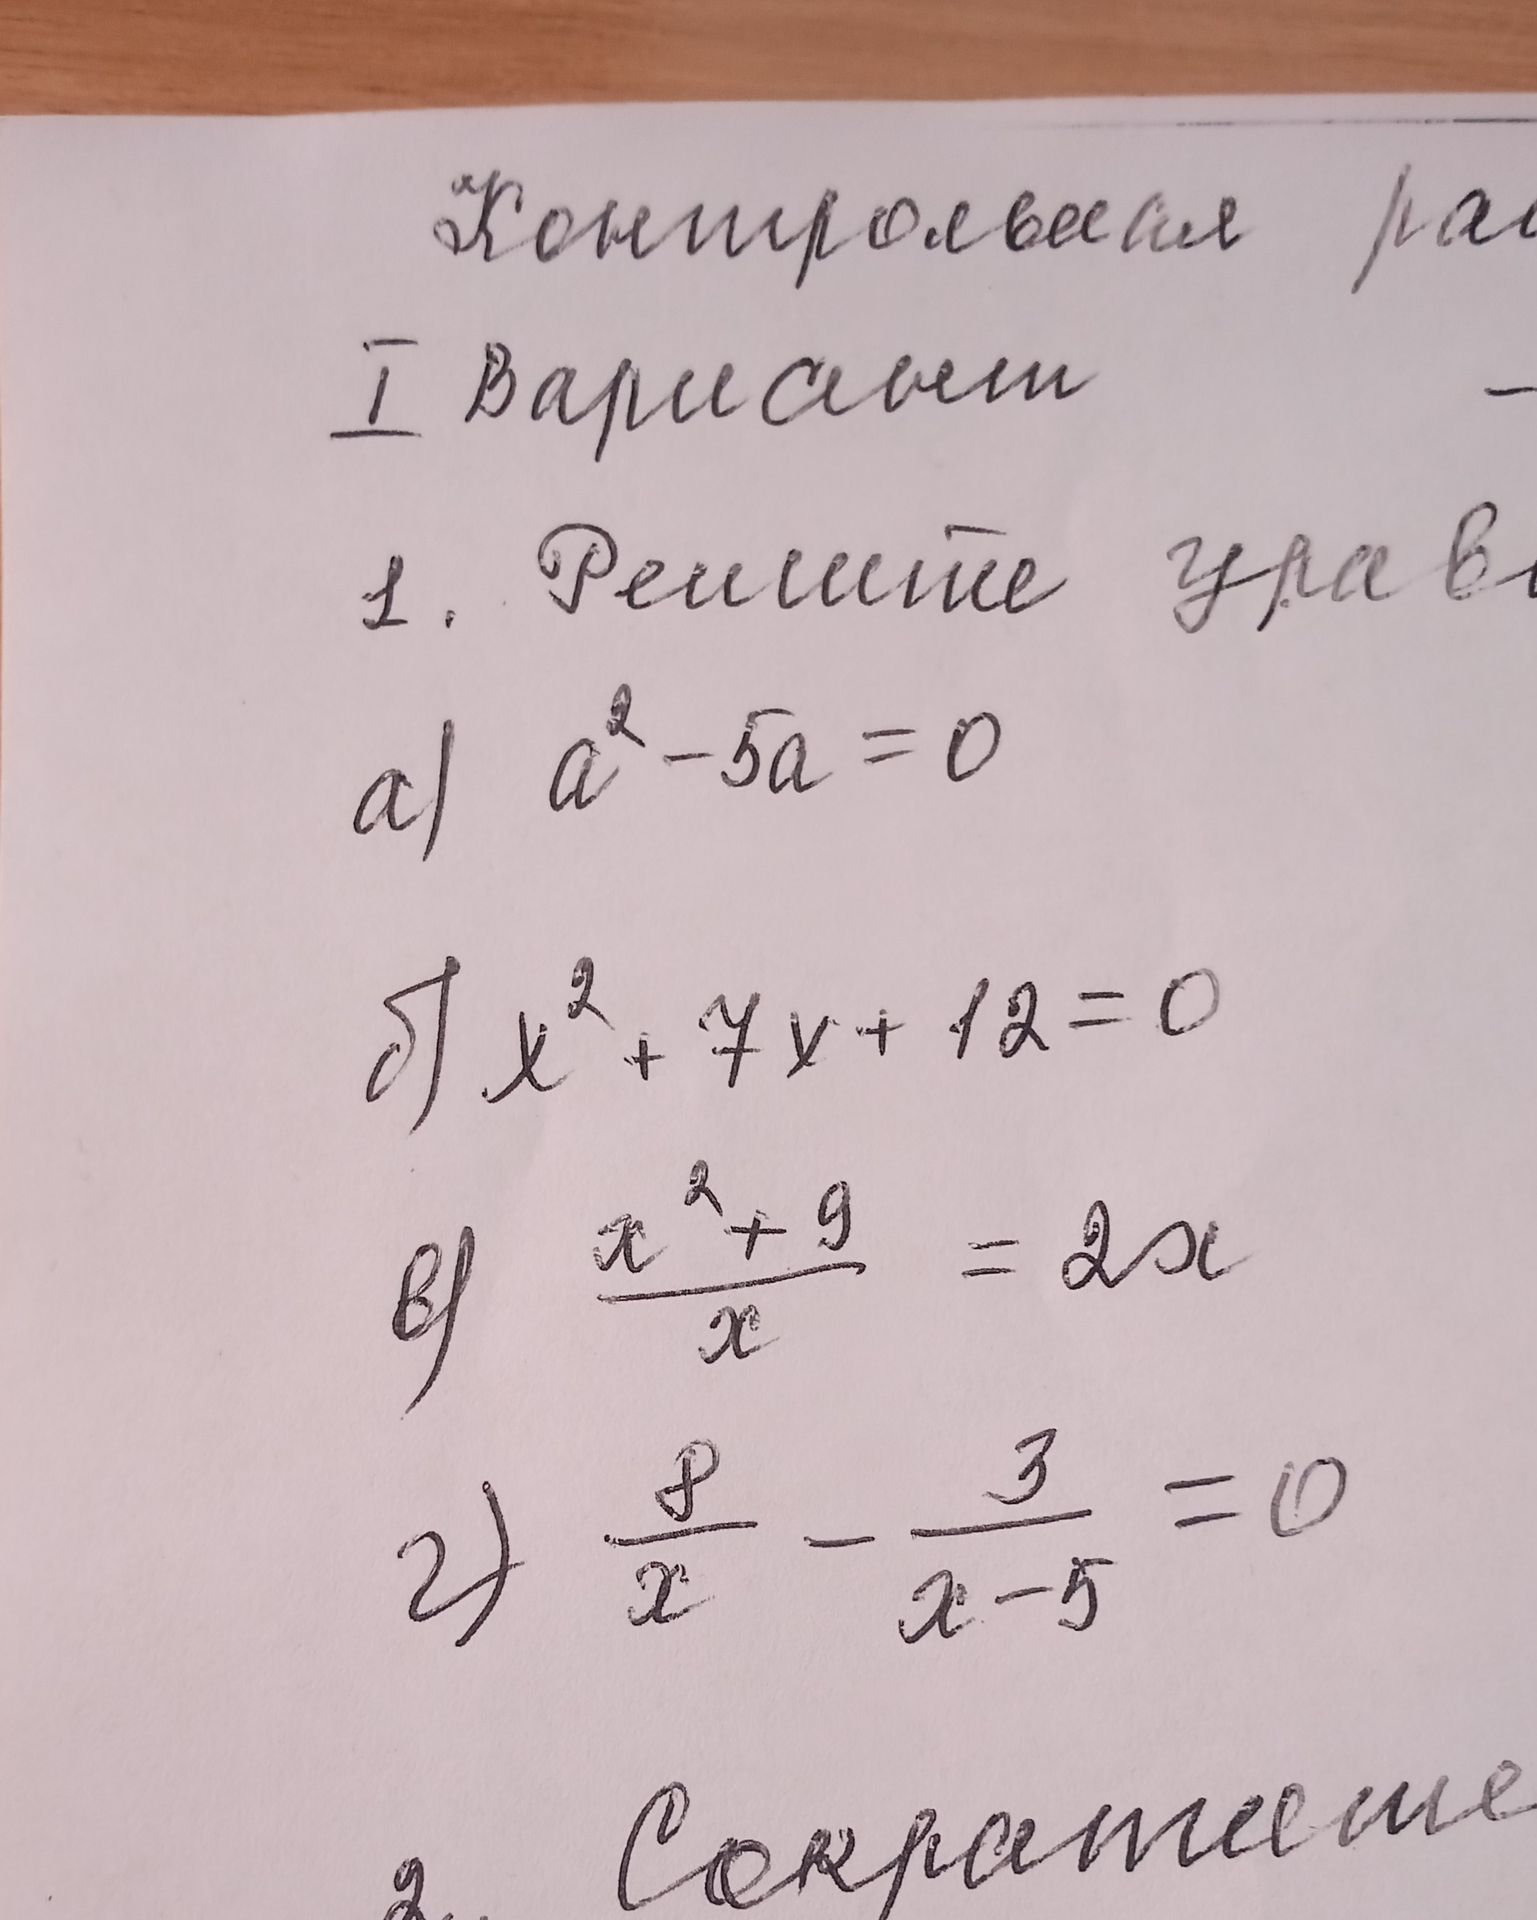 Контрольная ра
I Вариант
1. Решите урав
а) a² - 5a = 0
б) x² + 7x + 12 = 0
в) (x² + 9)/x = 2x
г) 8/x - 3/(x - 5) = 0
2. Сократите